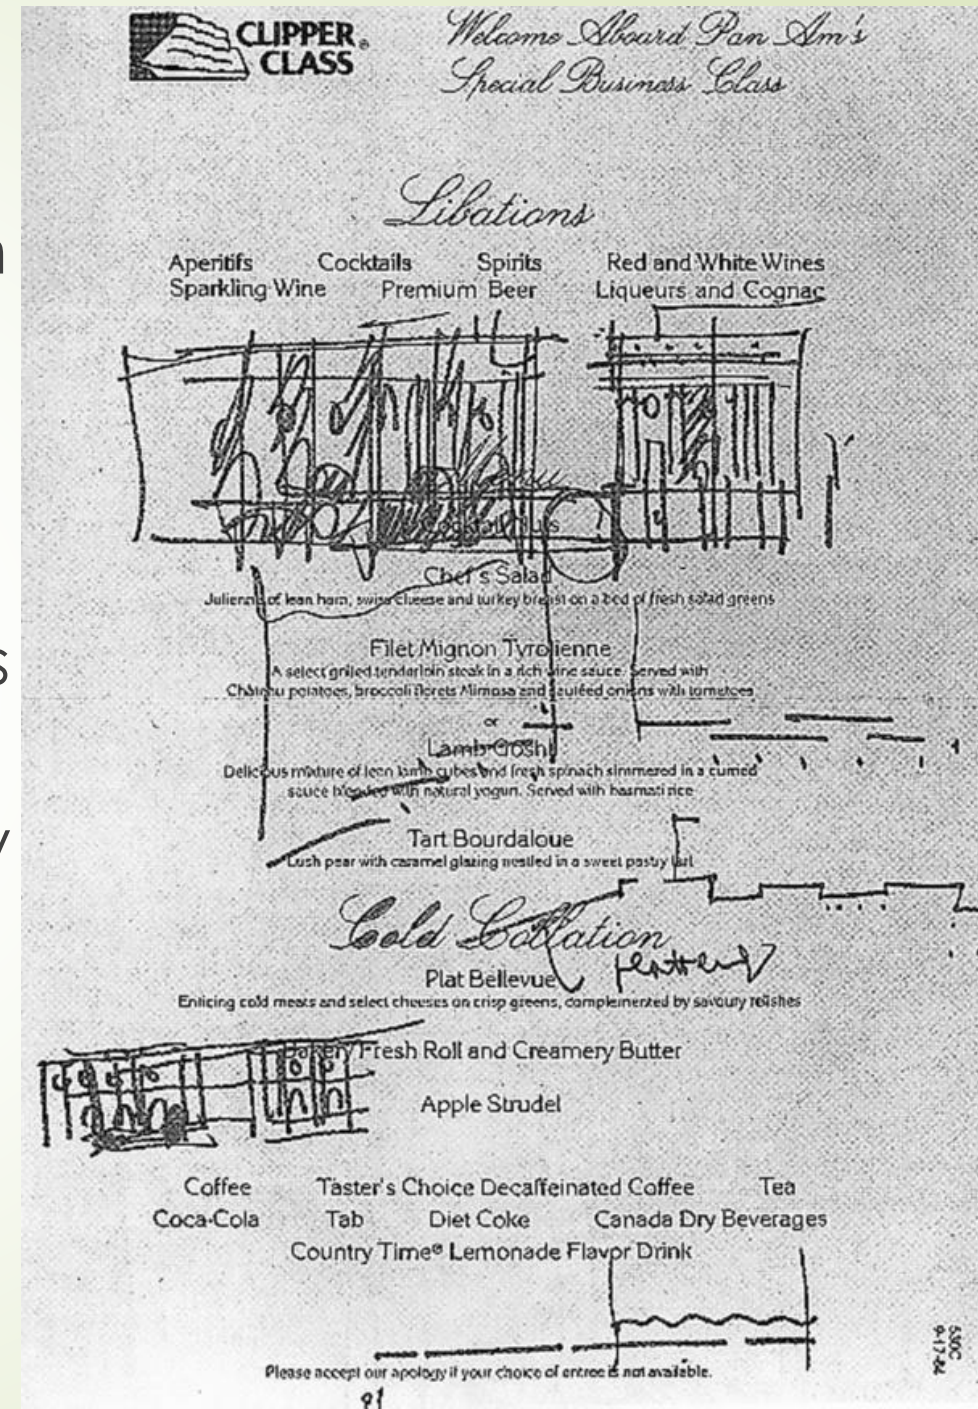 CLIPPER
CLASS
Welcome Aboard Pan Am's
Special Business Class
Libations
Aperitifs Cocktails Spirits Red and White Wines
Sparkling Wine Premium Beer Liqueurs and Cognac
Chef's Salad
Julienne of lean ham, swiss cheese and turkey breast on a bed of fresh salad greens
Filet Mignon Tyrolienne
A select grilled tenderloin steak in a rich wine sauce. Served with
Château potatoes, broccoli florets Mimosa and sautéed onions with tomatoes
or
Lamb Gosht
Delicious mixture of lean lamb cubes and fresh spinach simmered in a curried
sauce blended with natural yogurt. Served with basmati rice
Tart Bourdaloue
Lush pear with caramel glazing nestled in a sweet pastry tart
Cold Collation
Plat Bellevue
Enticing cold meats and select cheeses on crisp greens, complemented by savoury relishes
Bakery Fresh Roll and Creamery Butter
Apple Strudel
Coffee Taster's Choice Decaffeinated Coffee Tea
Coca-Cola Tab Diet Coke Canada Dry Beverages
Country Time® Lemonade Flavor Drink
Please accept our apology if your choice of entree is not available.